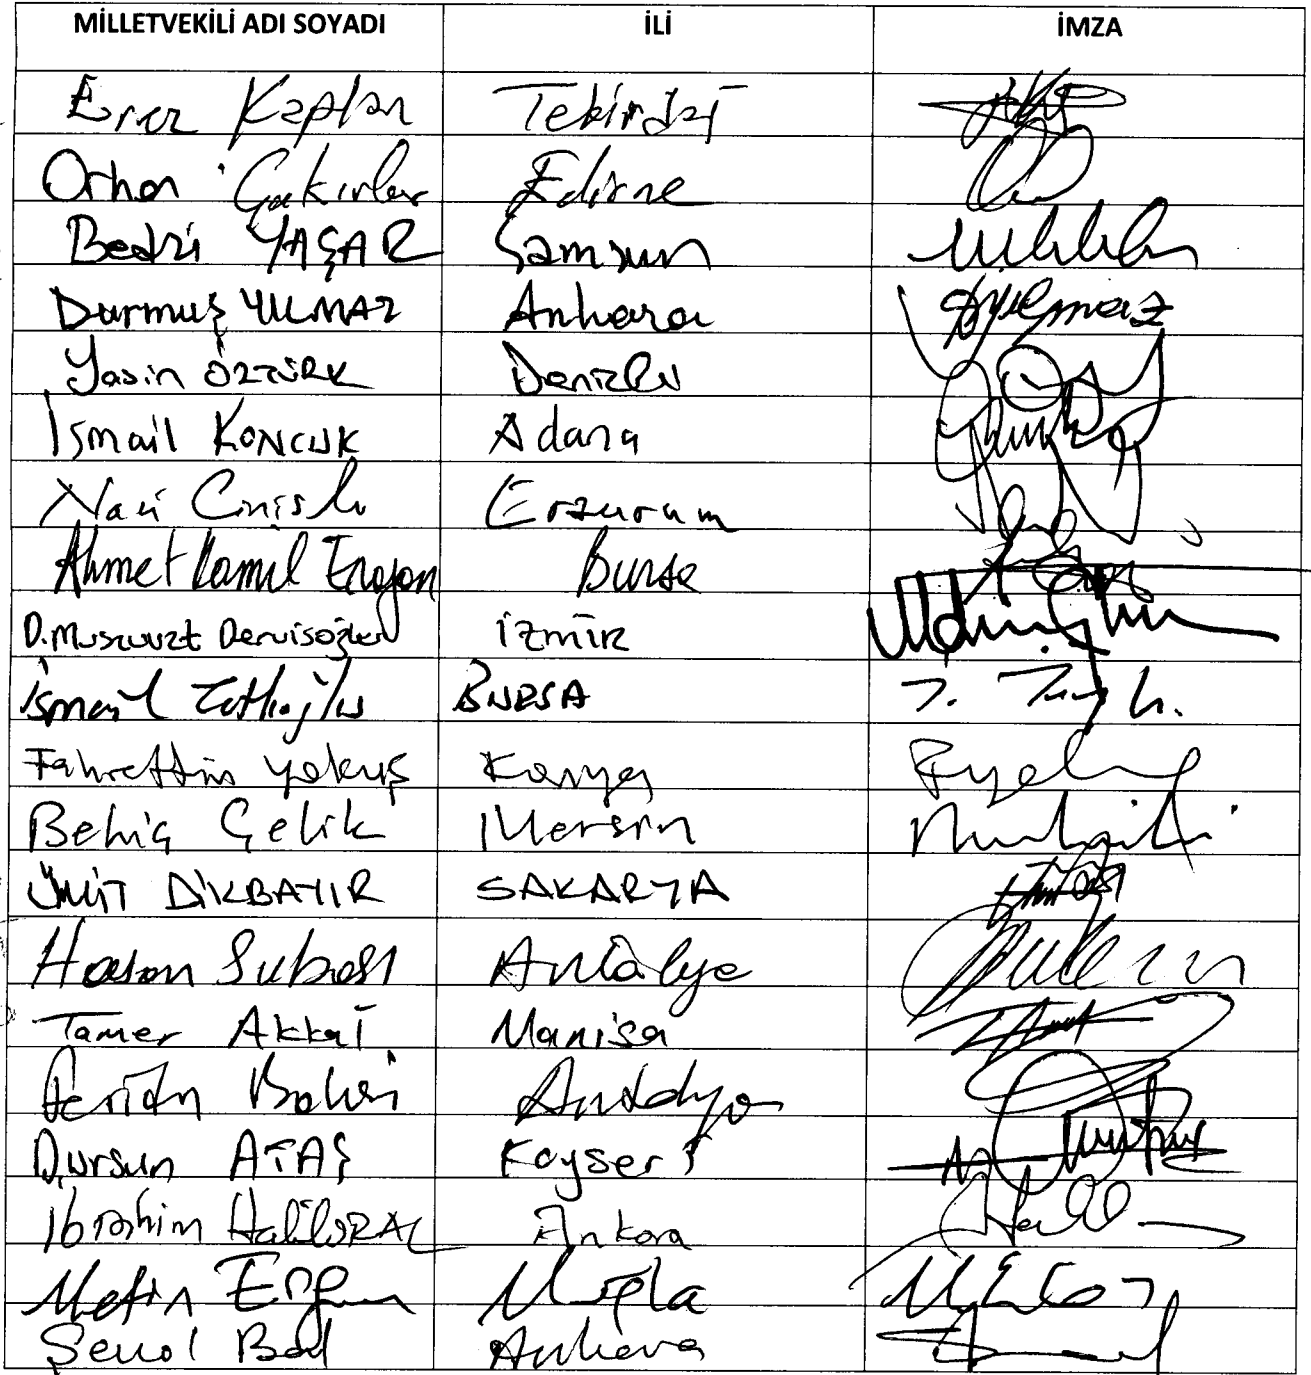 MİLLETVEKİLİ ADI SOYADI İLİ İMZA
Enez Kaplan Tekirdağ
Orhan Çakırlar Edirne
Bedri YAŞAR Samsun
Durmuş YILMAZ Ankara DYılmaz
Yasin ÖZTÜRK Denizli
İsmail KONCUK Adana
Naci Cinisli Erzurum
Ahmet Kamil Erozan Bursa
D. Müsavat Dervişoğlu İZMİR
İsmail Tatlıoğlu BURSA
Fahrettin Yokuş Konya
Behiç Çelik Mersin
ÜMİT DİKBAYIR SAKARYA
Hasan Subaşı Antalya
Tamer Akkal Manisa
Feridun Bahşi Antalya
Dursun ATAŞ Kayseri
İbrahim Halil ORAL Ankara
Metin Ergun Muğla
Şenol Bal Ankara